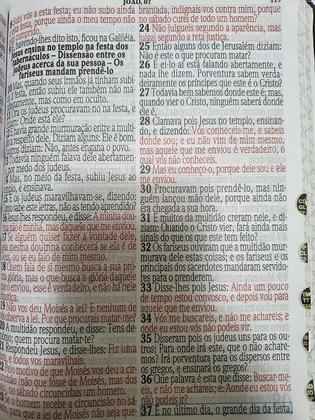 JOÃO, 07
vós a esta festa; eu não subo ainda
festa, porque ainda o meu tempo não
havendo-lhes dito isto, ficou na Galiléia.
Jesus ensina no templo na festa dos
tabernáculos – Dissensão entre os
judeus acerca da sua pessoa – Os
fariseus mandam prendê-lo
Mas, quando seus irmãos já tinham subi-
festa, então subiu ele também não ma-
nifestamente, mas como em oculto.
Ora os judeus procuravam-no na festa, e
diziam: Onde está ele?
E havia grande murmuração entre a multi-
a respeito dele. Diziam alguns: Ele é bom.
diziam: Não, antes engana o povo.
Todavia ninguém falava dele abertamen-
por medo dos judeus.
Mas, no meio da festa, subiu Jesus ao
templo, e ensinava.
E os judeus maravilhavam-se, dizendo:
sabe este letras, não as tendo aprendido?
Jesus lhes respondeu, e disse: A minha dou-
não é minha, mas daquele que me enviou.
Se alguém quiser fazer a vontade dele,
mesma doutrina conhecerá se ela é de
ou se eu falo de mim mesmo.
Quem fala de si mesmo busca a sua pró-
glória; mas o que busca a glória daquele
que o enviou, esse é verdadeiro, e não há nele
Não vos deu Moisés a lei? E nenhum de
observa a lei. Por que procurais matar-me?
A multidão respondeu, e disse: Tens de-
quem procura matar-te?
Respondeu Jesus, e disse-lhes: Fiz uma
e todos vos maravilhais.
Pelo motivo de que Moisés vos deu a cir-
(não que fosse de Moisés, mas dos
no sábado circuncidais um homem.
Se o homem recebe a circuncisão no sá-
para que a lei de Moisés não seja que-
brantada, indignais-vos contra mim, porque
no sábado curei de todo um homem?
24 Não julgueis segundo a aparência, mas
julgai segundo a reta justiça.
25 Então alguns de Jerusalém diziam:
Não é este o que procuram matar?
26 E ei-lo aí está falando abertamente, e
nada lhe dizem. Porventura sabem verda-
deiramente os príncipes que este é o Cristo?
27 Todavia bem sabemos donde este é;
quando vier o Cristo, ninguém saberá donde
ele é.
28 Clamava pois Jesus no templo, ensinan-
do, e dizendo: Vós conheceis-me, e sabeis
donde sou; e eu não vim de mim mesmo,
mas aquele que me enviou é verdadeiro, o
qual vós não conheceis.
29 Mas eu conheço-o, porque dele sou e ele
me enviou.
30 Procuravam pois prendê-lo, mas nin-
guém lançou mão dele, porque ainda não
era chegada a sua hora.
31 E muitos da multidão creram nele, e di-
ziam: Quando o Cristo vier, fará ainda mais
sinais do que os que este tem feito?
32 Os fariseus ouviram que a multidão mur-
murava dele estas coisas; e os fariseus e os
principais dos sacerdotes mandaram servido-
res para o prenderem.
33 Disse-lhes pois Jesus: Ainda um pouco
de tempo estou convosco, e depois vou para
aquele que me enviou.
34 Vós me buscareis, e não me achareis;
e onde eu estou vós não podeis vir.
35 Disseram pois os judeus uns para os ou-
tros: Para onde irá este, que o não achare-
mos? Irá porventura para os dispersos entre
os gregos, e ensinará os gregos?
36 Que palavra é esta que disse: Buscar-me-
eis, e não me achareis; e: Aonde eu estou vós
não podeis ir?
37 E no último dia, o grande dia da festa,